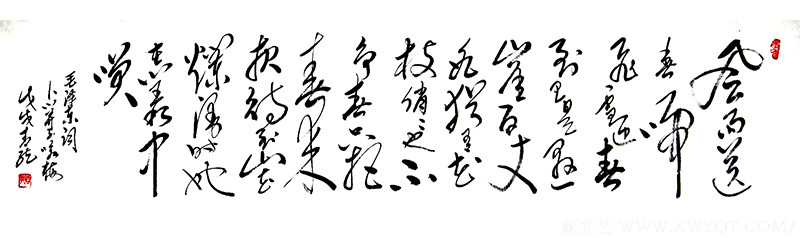 风雨送
春归
飞雪迎春
到已是悬
崖百丈
冰犹有花
枝俏也不
争春只把
春来
报待到山花
烂漫时她
在丛中
笑
毛泽东词
卜算子咏梅
戊戌
新文艺 WWW.XWYQT.COM/